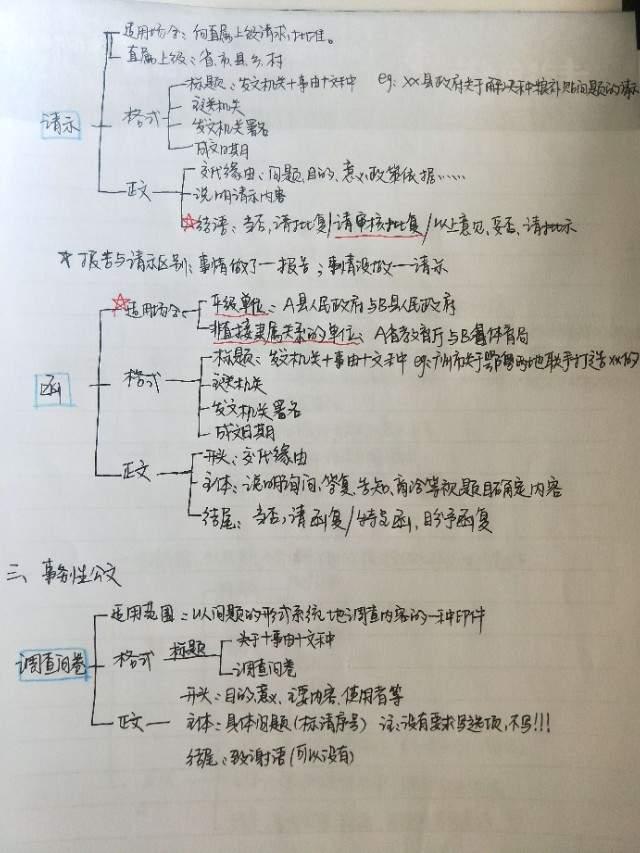 适用场合：向直属上级请求批准。
直属上级：省、市、县、乡、村
请示
格式
标题：发文机关+事由+文种 eg：xx县政府关于解决良种粮补贴问题的请示
主送机关
发文机关署名
成文日期
正文
交代缘由：问题、目的、意义、政策依据……
说明请示内容
☆结语：当否，请批复/请审核批复/以上意见，妥否，请批示
*报告与请示区别：事情做了—报告；事情没做—请示
☆适用场合
平级单位：A县人民政府与B县人民政府
非直接隶属关系的单位：A省教育厅与B县体育局
函
格式
标题：发文机关+事由+文种 eg：广州市关于 两地联手打造xx的
主送机关
发文机关署名
成文日期
正文
开头：交代缘由
主体：说明询问、答复、告知、商洽等 且确定内容
结尾：当否，请函复/特此函，盼予函复
三、事务性公文
调查问卷
适用范围：以问题的形式系统地调查内容的一种印件
格式 标题
关于+事由+文种
调查问卷
正文
开头：目的、意义、主要内容、使用者等
主体：具体问题（标清序号） 注：没有要求写选项，不写!!!
结尾：致谢语（可以没有）